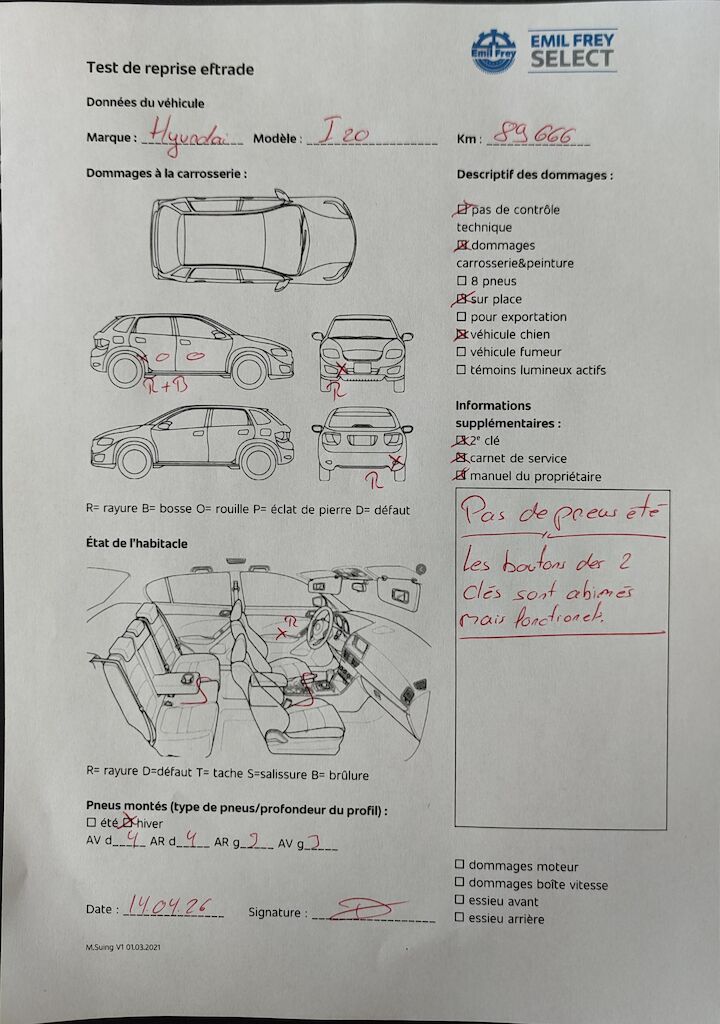 Emil Frey
EMIL FREY
SELECT
Test de reprise eftrade
Données du véhicule
Marque : Hyundai Modèle : I 20 Km : 89 666
Dommages à la carrosserie :
R + B
R
R
R= rayure B= bosse O= rouille P= éclat de pierre D= défaut
État de l'habitacle
R
S
S
R= rayure D=défaut T= tache S=salissure B= brûlure
Pneus montés (type de pneus/profondeur du profil) :
☐ été ☒ hiver
AV d 4 AR d 4 AR g 3 AV g 3
Date : 14.04.26 Signature :
M.Suing V1 01.03.2021
Descriptif des dommages :
☒ pas de contrôle
technique
☒ dommages
carrosserie&peinture
☐ 8 pneus
☒ sur place
☐ pour exportation
☒ véhicule chien
☐ véhicule fumeur
☐ témoins lumineux actifs
Informations
supplémentaires :
☒ 2e clé
☒ carnet de service
☒ manuel du propriétaire
Pas de pneus été
Les boutons des 2
clés sont abimés
mais fonctionels.
☐ dommages moteur
☐ dommages boîte vitesse
☐ essieu avant
☐ essieu arrière